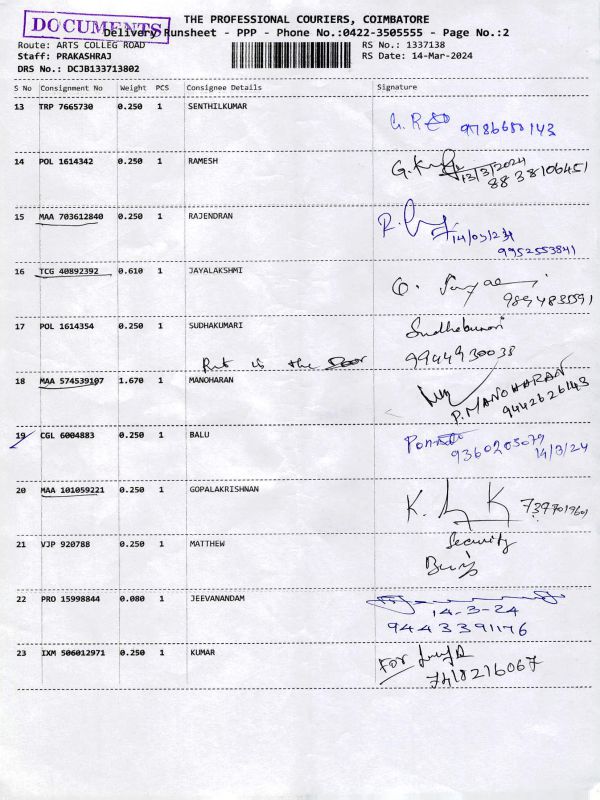 DOCUMENTS
THE PROFESSIONAL COURIERS, COIMBATORE
Delivery Runsheet - PPP - Phone No.:0422-3505555 - Page No.:2
Route: ARTS COLLEG ROAD RS No.: 1337138
Staff: PRAKASHRAJ RS Date: 14-Mar-2024
DRS No.: DCJB133713802
S No Consignment No Weight PCS Consignee Details Signature
13 TRP 7665730 0.250 1 SENTHILKUMAR
9786680143
14 POL 1614342 0.250 1 RAMESH
13/3/2024
8838106451
15 MAA 703612840 0.250 1 RAJENDRAN
14/03/24
9952553841
16 TCG 40892392 0.610 1 JAYALAKSHMI
17 POL 1614354 0.250 1 SUDHAKUMARI Sudhakumari
Put is the door 9944930038
18 MAA 574539107 1.670 1 MANOHARAN
P. MANOHARAN
9442626143
19 CGL 6004883 0.250 1 BALU
9360205079
14/3/24
20 MAA 101059221 0.250 1 GOPALAKRISHNAN
21 VJP 920788 0.250 1 MATTHEW Security
22 PRO 15998844 0.080 1 JEEVANANDAM
14-3-24
9443391176
23 IXM 506012971 0.250 1 KUMAR For
7418216067